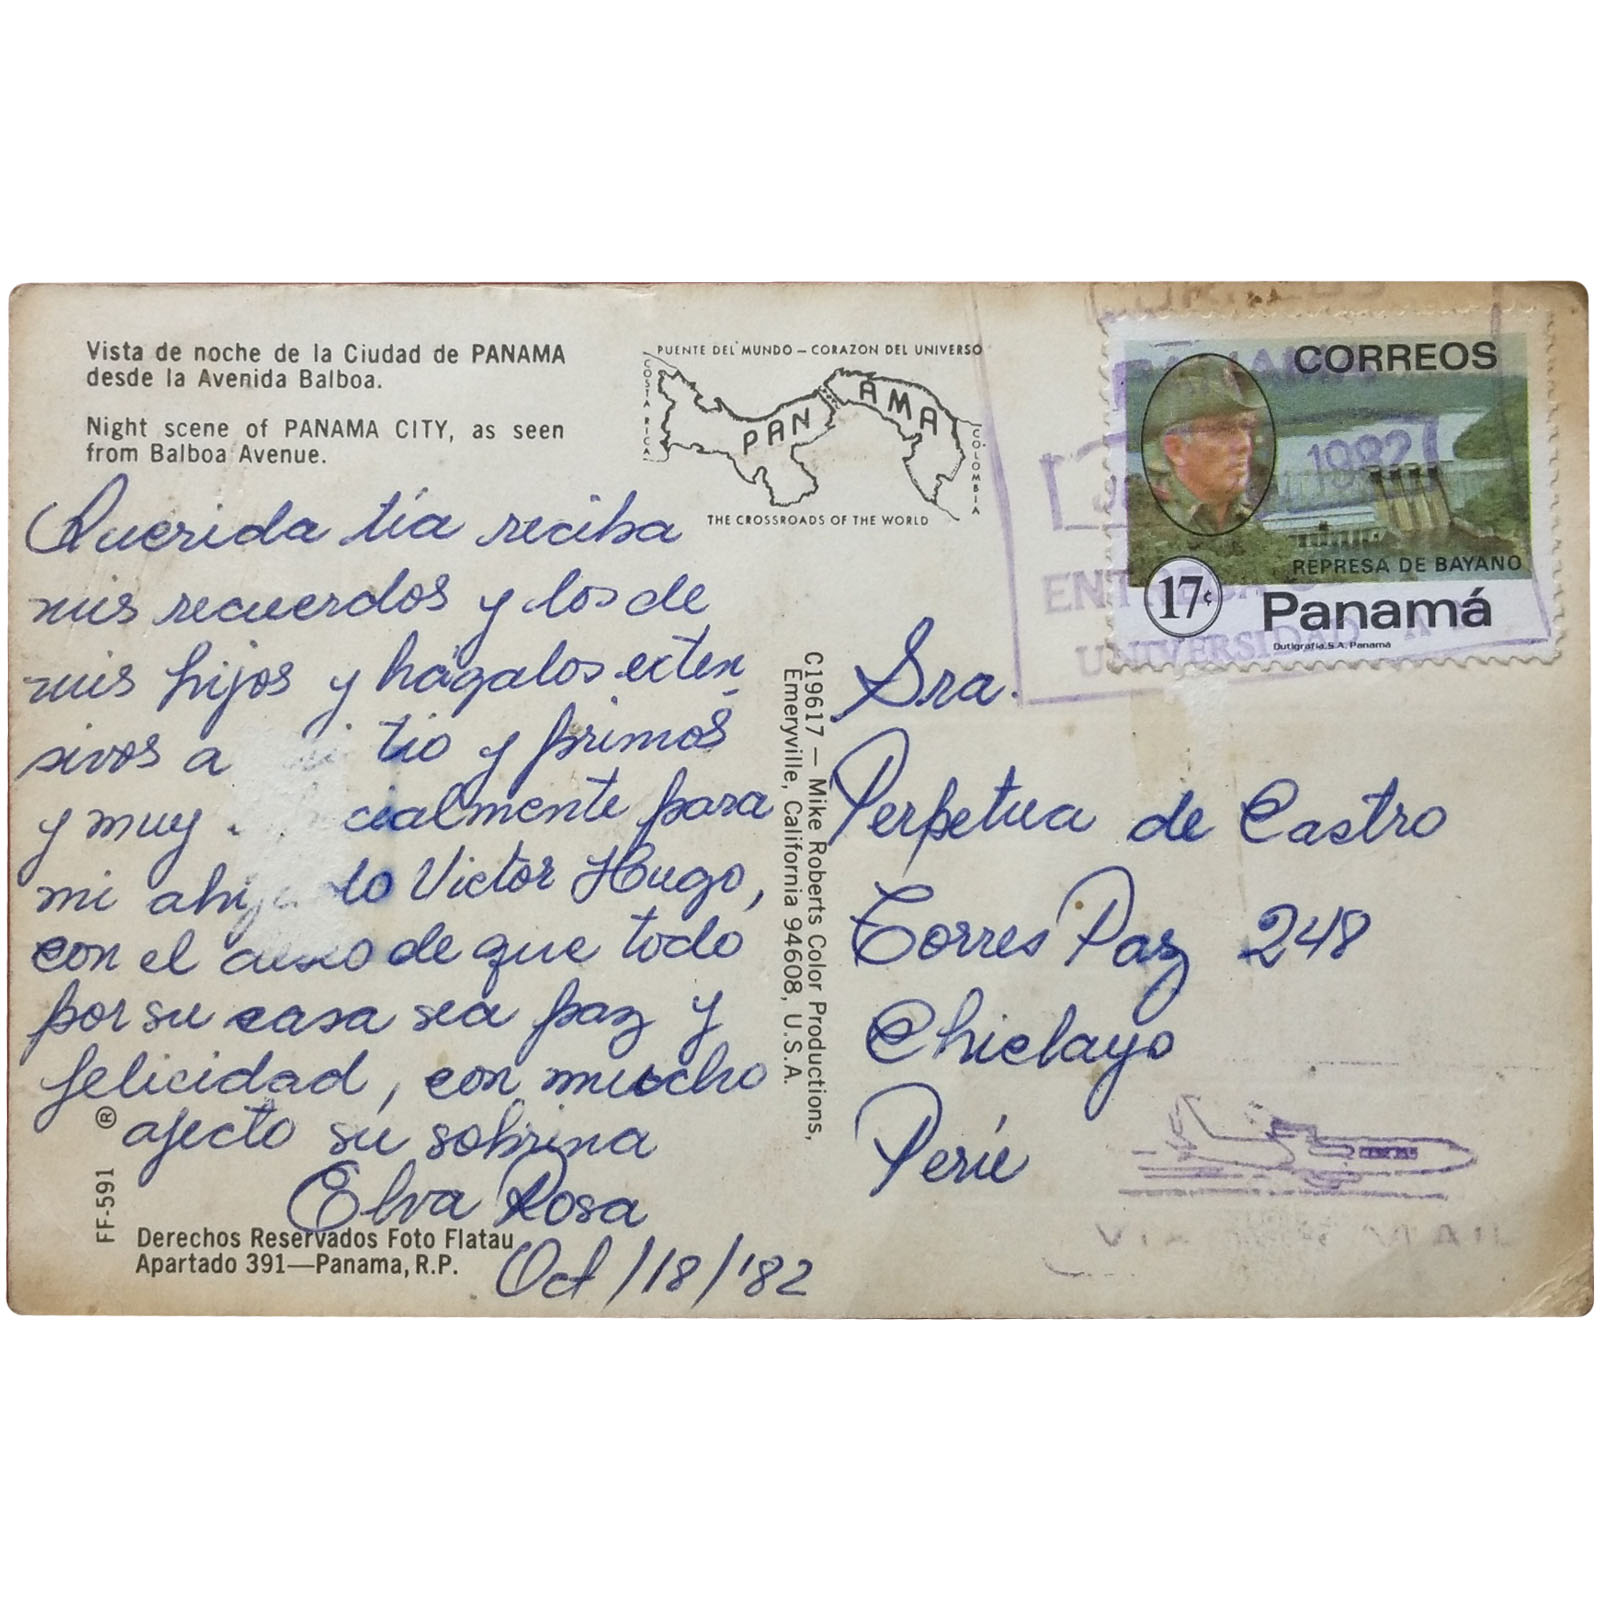 Vista de noche de la Ciudad de PANAMA
desde la Avenida Balboa.
Night scene of PANAMA CITY, as seen
from Balboa Avenue.
PUENTE DEL MUNDO — CORAZON DEL UNIVERSO
COSTA RICA
PANAMA
COLOMBIA
THE CROSSROADS OF THE WORLD
CORREOS
1982
REPRESA DE BAYANO
17¢
Panamá
Dutigrafia, S.A. Panamá
UNIVERSIDAD
Querida tía reciba
mis recuerdos y los de
mis hijos y hágalos exten
sivos a tío y primos
y muy cialmente para
mi ahi do Victor Hugo,
con el deseo de que todo
por su casa sea paz y
felicidad, con mucho
afecto su sobrina
Elva Rosa
Oct/18/'82
® FF-591
Derechos Reservados Foto Flatau
Apartado 391—Panama, R.P.
C19617 — Mike Roberts Color Productions,
Emeryville, California 94608, U.S.A.
Sra.
Perpetua de Castro
Torres Paz 248
Chiclayo
Perú
VIA MAIL